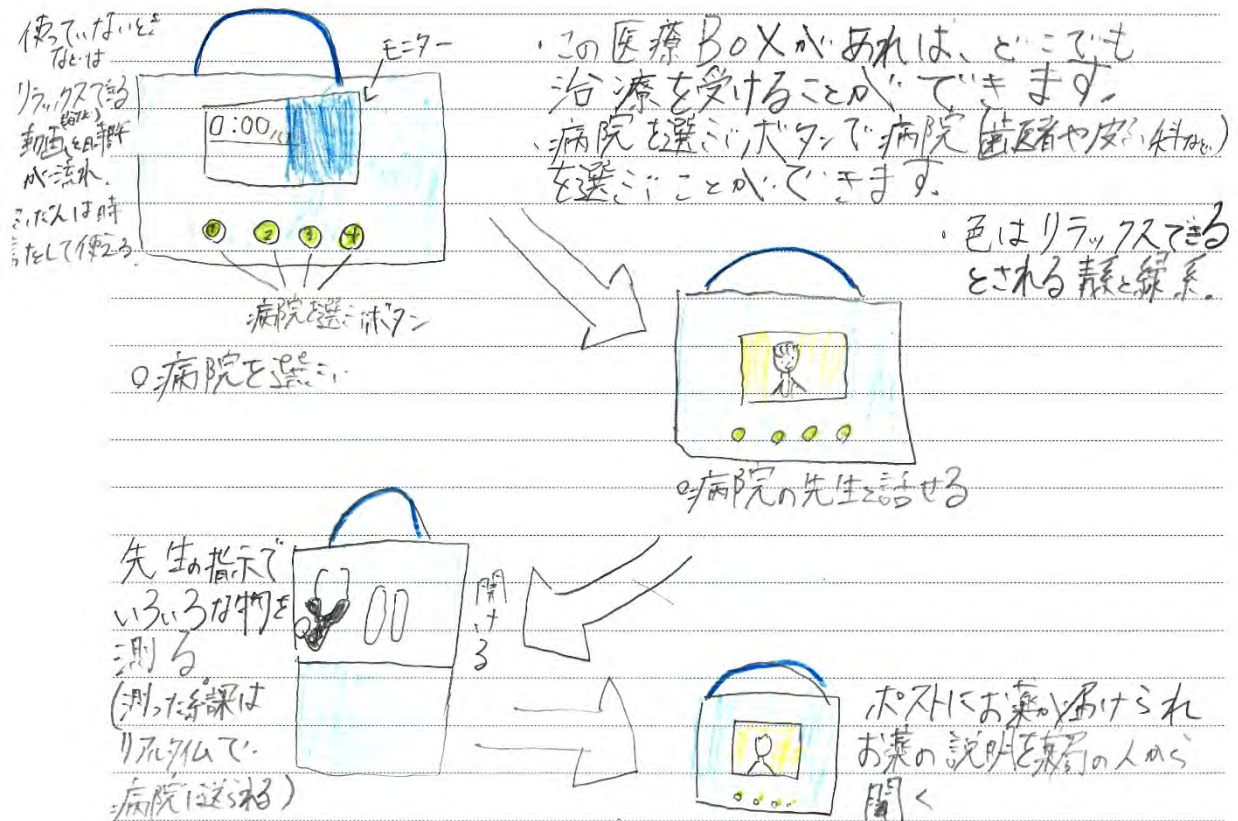 使っていないとき
などは
リラックスできる
動画(音声)と時計
が流れ、
ふだんは時
計として使える。
モニター
0:00
・この医療BOXがあれば、どこでも
治療を受けることができます。
・病院を選ぶボタンで病院(歯医者や皮ふ科など)
を選ぶことができます。
・色はリラックスできる
とされる青系と緑系。
① ② ③ ④
病院を選ぶボタン
○病院を選ぶ
○病院の先生と話せる
先生の指示で
いろいろな物を
測る。
(測った結課は
リアルタイムで
病院に送られる)
開ける
ポストにお薬が届けられ
お薬の説明を薬局の人から
聞く